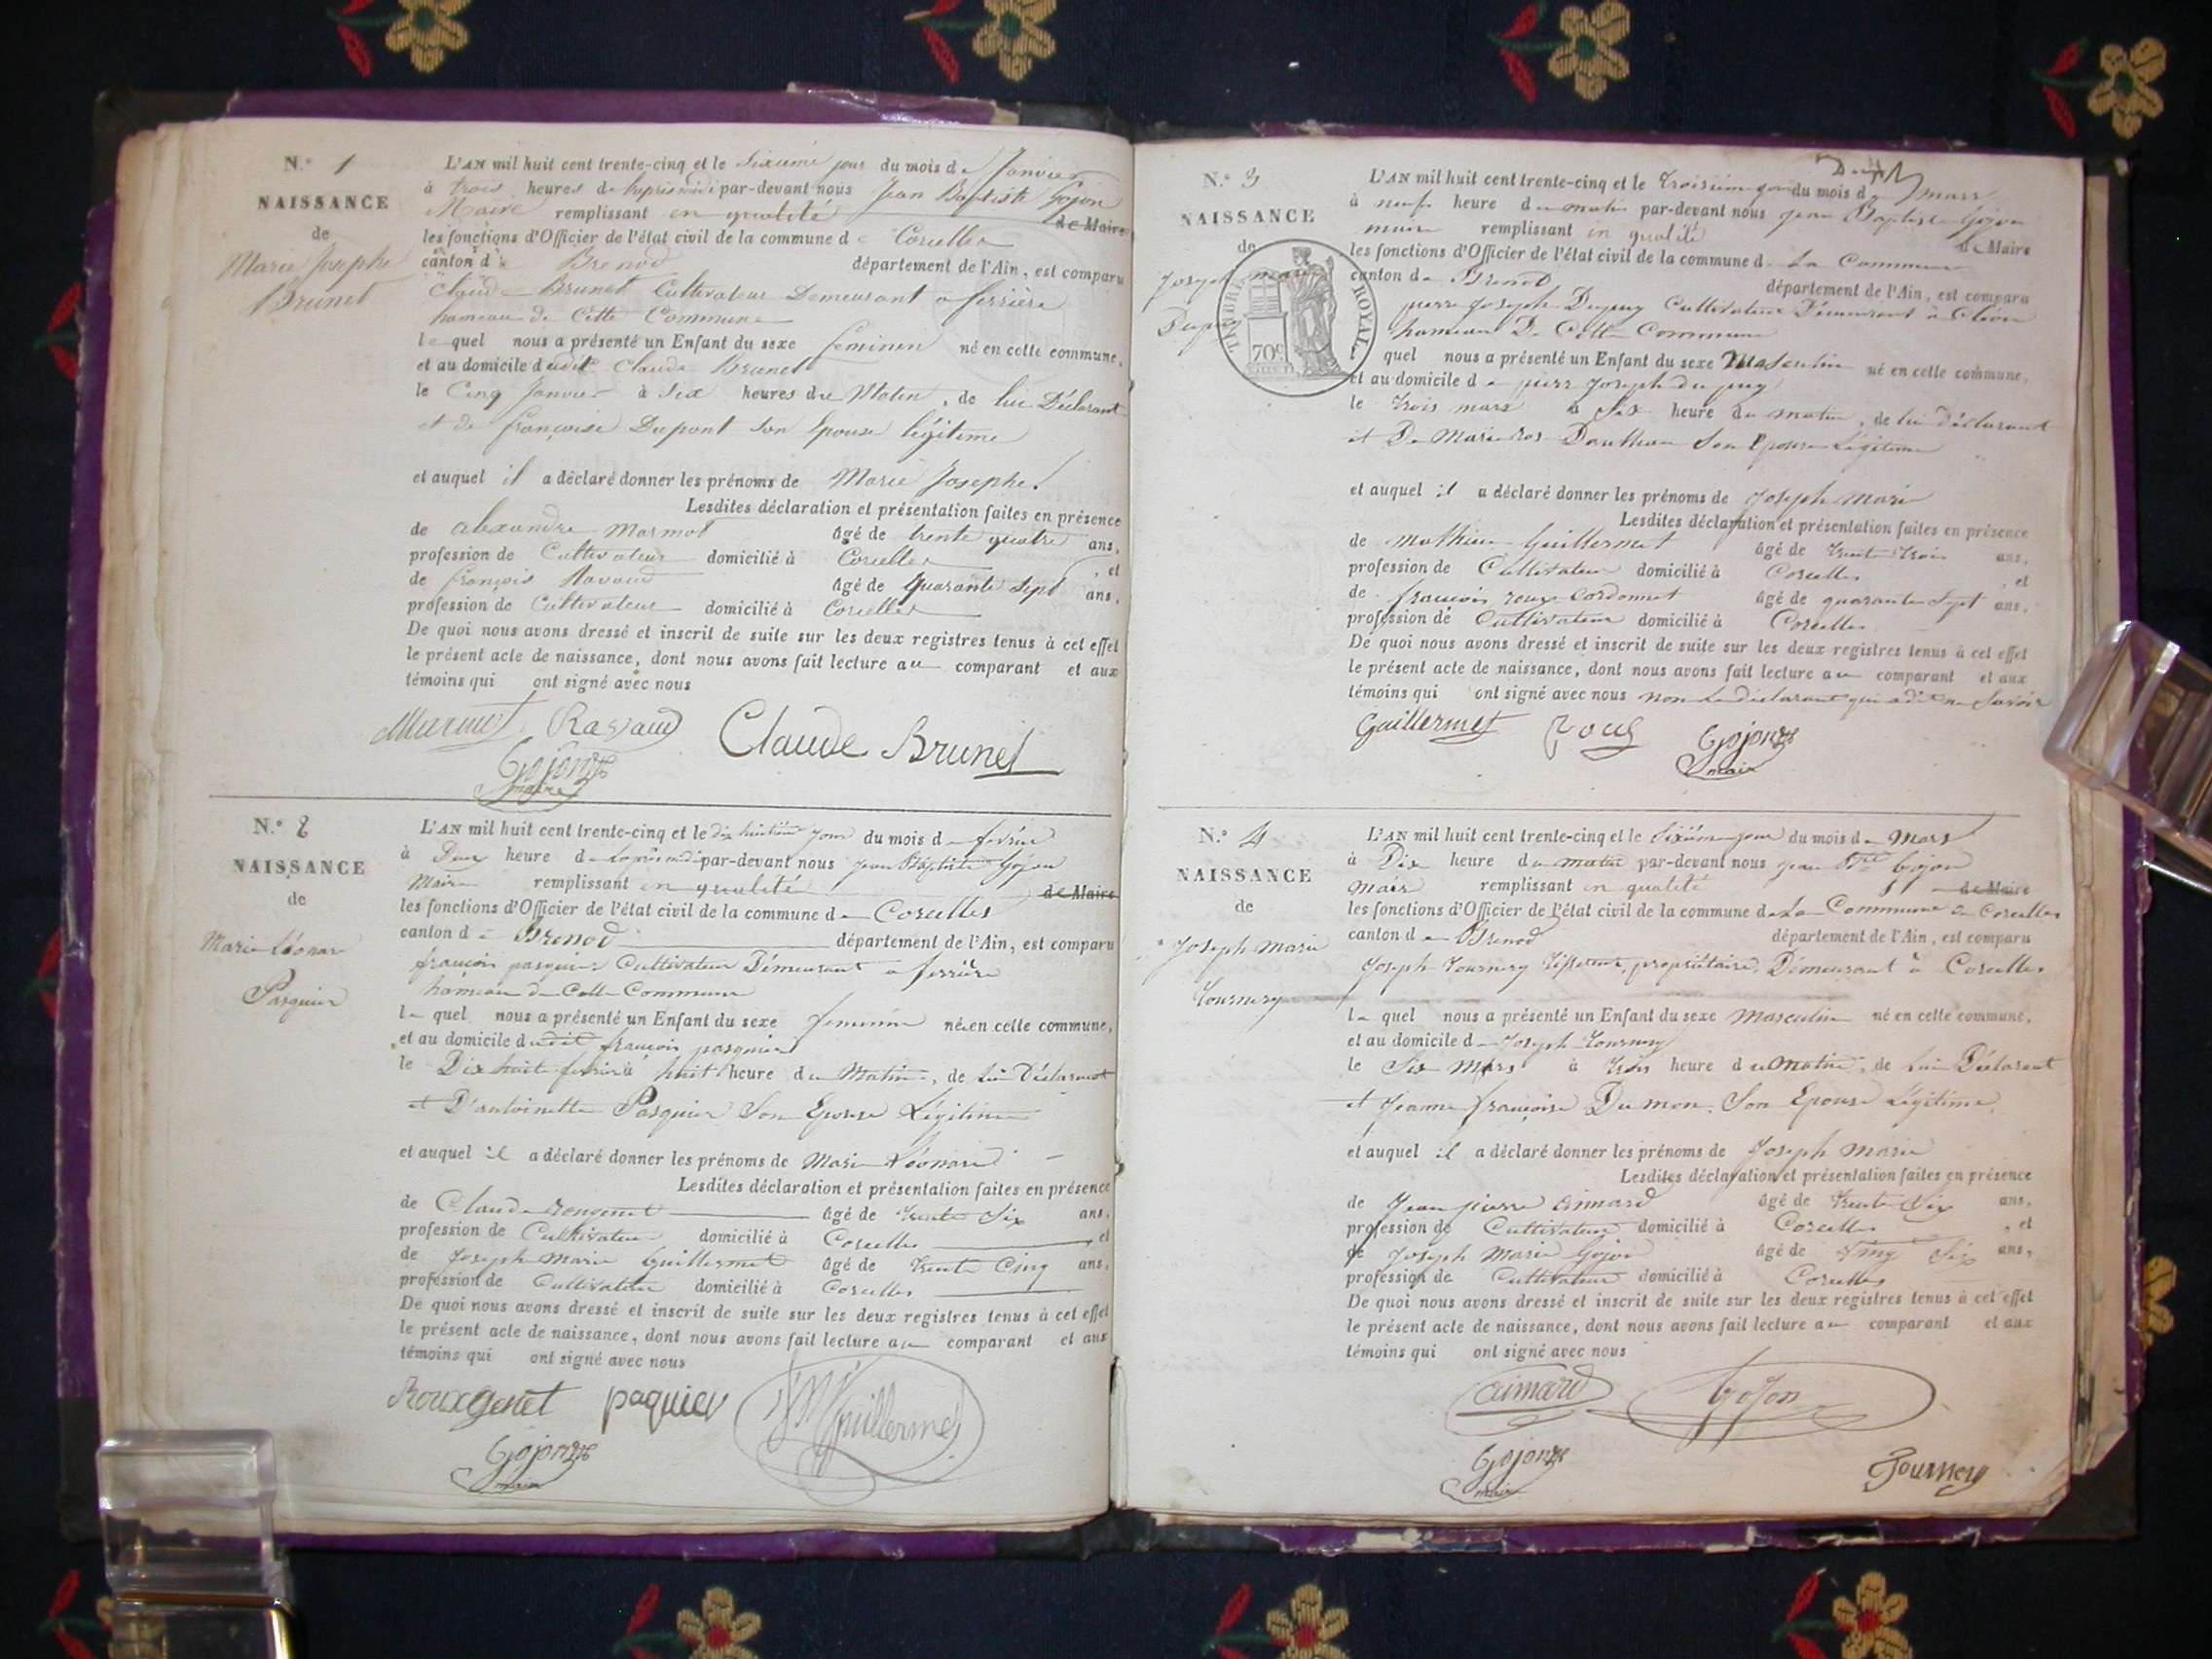 N.º 1
NAISSANCE
de
Marie Josephe
Brunet
L'AN mil huit cent trente-cinq et le Sixième jour du mois de Janvier
à trois heures de l'après midi par-devant nous Jean Baptiste Gojon
Maire remplissant en qualité de Maire
les fonctions d'Officier de l'état civil de la commune de Corcelles
canton de Brenod département de l'Ain, est comparu
Claude Brunet Cultivateur Demeurant a ferrière
hameau de Cette Commune
le quel nous a présenté un Enfant du sexe feminen né en cette commune,
et au domicile dudit Claude Brunet
le Cinq Janvier à Six heures du Matin, de lui Déclarant
et de françoise Dupont Son Epouse légitime
et auquel il a déclaré donner les prénoms de Marie Josephe.
Lesdites déclaration et présentation faites en présence
de alexandre Marmot âgé de trente quatre ans,
profession de Cultivateur domicilié à Corcelles, et
de françois Ravaud âgé de quarante Sept ans,
profession de Cultivateur domicilié à Corcelles
De quoi nous avons dressé et inscrit de suite sur les deux registres tenus à cet effet
le présent acte de naissance, dont nous avons fait lecture au comparant et aux
témoins qui ont signé avec nous
Marmot Ravaud Claude Brunet
Gojon
maire
N.º 2
NAISSANCE
de
Marie Léonard
Pasquier
L'AN mil huit cent trente-cinq et le dix huitième jour du mois de fevrier
à Deux heure de lapres midi par-devant nous jean Baptiste Gojon
Maire remplissant en qualité de Maire
les fonctions d'Officier de l'état civil de la commune de Corcelles
canton de Brenod département de l'Ain, est comparu
françois pasquier Cultivateur Démeurant a ferrière
hameau de Cette Commune
le quel nous a présenté un Enfant du sexe feminin née en cette commune,
et au domicile dudit francois pasquier
le Dix huit fevrier à huit heure du Matin, de lui Déclarant
et D'antoinette Pasquier Son Epouse Légitime
et auquel il a déclaré donner les prénoms de Marie Léonard
Lesdites déclaration et présentation faites en présence
de Claude rougenet âgé de trente Six ans,
profession de Cultivateur domicilié à Corcelles, et
de Joseph Marie Guillermet âgé de trente Cinq ans,
profession de Cultivateur domicilié à Corcelles
De quoi nous avons dressé et inscrit de suite sur les deux registres tenus à cet effet
le présent acte de naissance, dont nous avons fait lecture au comparant et aux
témoins qui ont signé avec nous
Rouxgenet paquier JM Guillermet
Gojon
maire
N.º 3
NAISSANCE
de
Joseph marie
Dupuy
TIMBRE ROYAL
70c
L'AN mil huit cent trente-cinq et le troisième jour du mois de mars
à neuf heure du matin par-devant nous jean Baptiste Gojon
maire remplissant en qualité de Maire
les fonctions d'Officier de l'état civil de la commune de La Commune
canton de Brenod département de l'Ain, est comparu
pierre Joseph Dupuy Cultivateur Démeurant à Cléon
hameau De Cette Commune
quel nous a présenté un Enfant du sexe Masculin né en cette commune,
et au domicile de pierre Joseph du puy
le trois mars à Six heure du matin, de lui déclarant
et De Marie ros Son Epouse Légitime
et auquel il a déclaré donner les prénoms de Joseph Marie
Lesdites déclaration et présentation faites en présence
de Mathieu Guillermet âgé de trente trois ans,
profession de Cultivateur domicilié à Corcelles, et
de francois roux Cordonnet âgé de quarante Sept ans,
profession de Cultivateur domicilié à Corcelles
De quoi nous avons dressé et inscrit de suite sur les deux registres tenus à cet effet
le présent acte de naissance, dont nous avons fait lecture au comparant et aux
témoins qui ont signé avec nous non Le déclarant qui a dit ne Savoir
Guillermet Roux Gojon
maire
N.º 4
NAISSANCE
de
Joseph Marie
Tournery
L'AN mil huit cent trente-cinq et le Sixième jour du mois de Mars
à Dix heure du matin par-devant nous jean Bte Gojon
maire remplissant en qualité de Maire
les fonctions d'Officier de l'état civil de la commune de La Commune de Corcelles
canton de Brenod département de l'Ain, est comparu
Joseph Tournery propriétaire, Démeurant à Corcelles
le quel nous a présenté un Enfant du sexe Masculin né en cette commune,
et au domicile de Joseph Tournery
le Six Mars à trois heure du Matin, de lui Déclarant
et Jeanne françoise Dumon Son Epouse Légitime
et auquel il a déclaré donner les prénoms de Joseph Marie
Lesdites déclaration et présentation faites en présence
de Jean pierre aimard âgé de trente Six ans,
profession de Cultivateur domicilié à Corcelles, et
de Joseph Marie Gojon âgé de Vingt Six ans,
profession de Cultivateur domicilié à Corcelles
De quoi nous avons dressé et inscrit de suite sur les deux registres tenus à cet effet
le présent acte de naissance, dont nous avons fait lecture au comparant et aux
témoins qui ont signé avec nous
aimard Gojon
Gojon
maire
Tournery